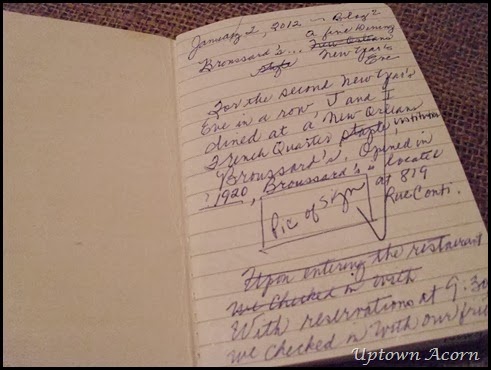 January 2, 2012 ~ Blog 2
a fine Dining
Broussard's... New Orleans
style New Year's
Eve
For the second New Year's
Eve in a row, J and I
dined at a New Orleans
French Quarter staple, institution
Broussard's. Opened in
1920, Broussard's is located
at 819
Rue Conti.
Pic of Sign
Upon entering the restaurant
we checked in with
With reservations at 9:30
we checked in with our frie
Uptown Acorn